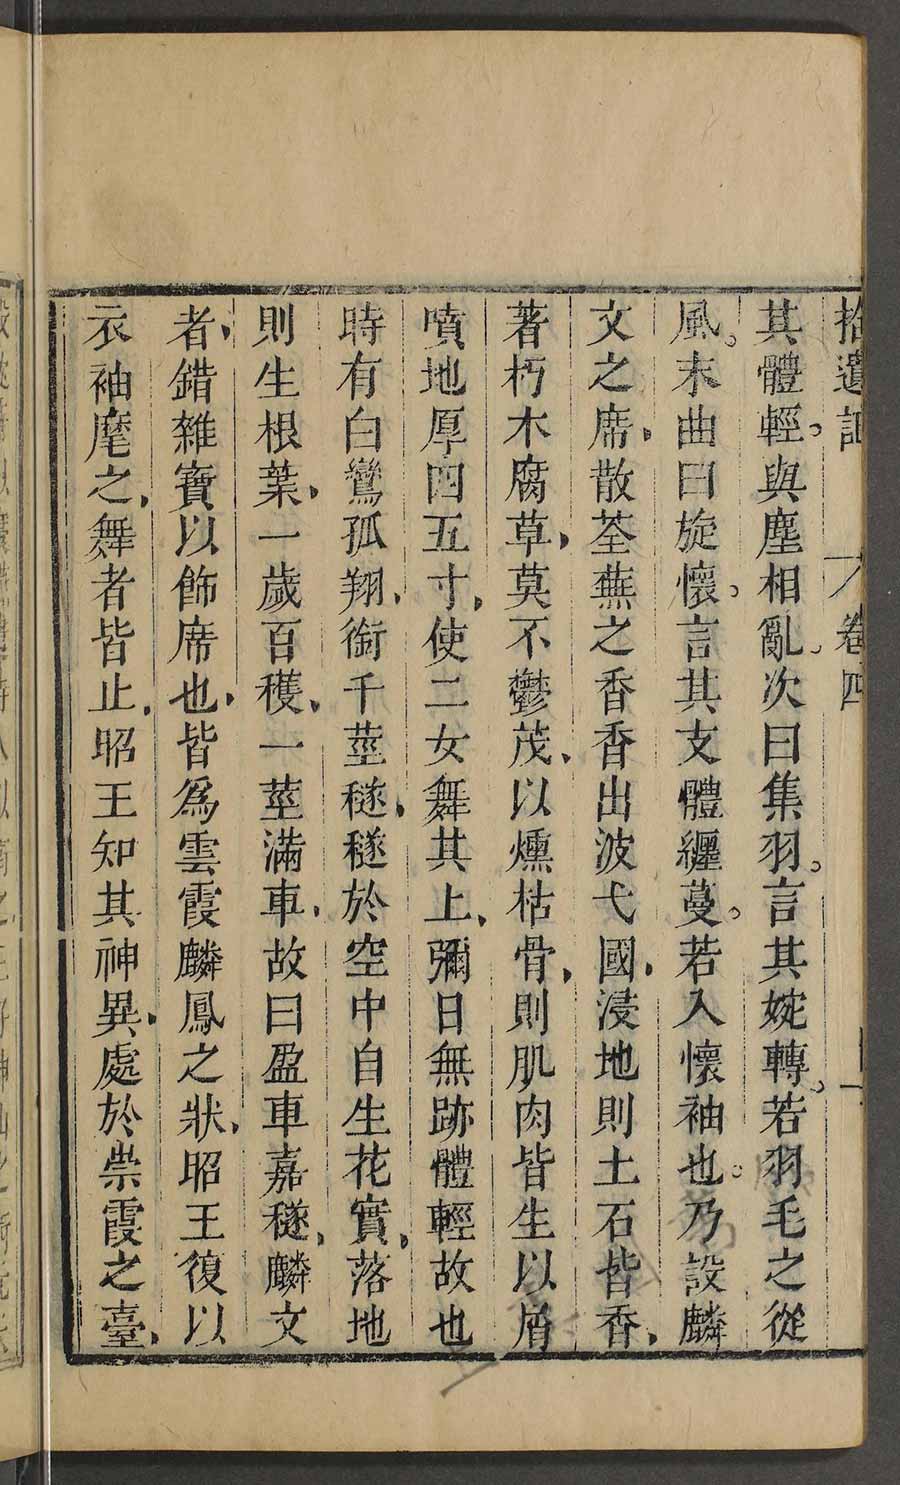 拾遺記 卷四
其體輕。與塵相亂。次曰集羽。言其婉轉。若羽毛之從
風。末曲曰旋懷。言其支體纏蔓。若入懷袖也。乃設麟
文之席、散荃蕪之香香出波弋國、浸地則土石皆香、
著朽木腐草、莫不鬱茂、以燻枯骨、則肌肉皆生以屑
噴地厚四五寸、使二女舞其上、彌日無跡體輕故也
時有白鸞孤翔、銜千莖穟、穟於空中自生花實、落地
則生根葉、一歲百穫、一莖滿車、故曰盈車嘉穟、麟文
者、錯雜寶以飾席也、皆為雲霞麟鳳之狀、昭王復以
衣袖麾之、舞者皆止、昭王知其神異、處於崇霞之臺、